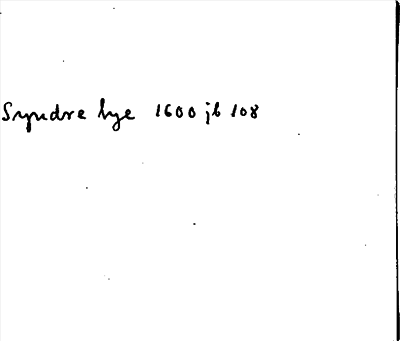 Syndre hye 1600 jb 108